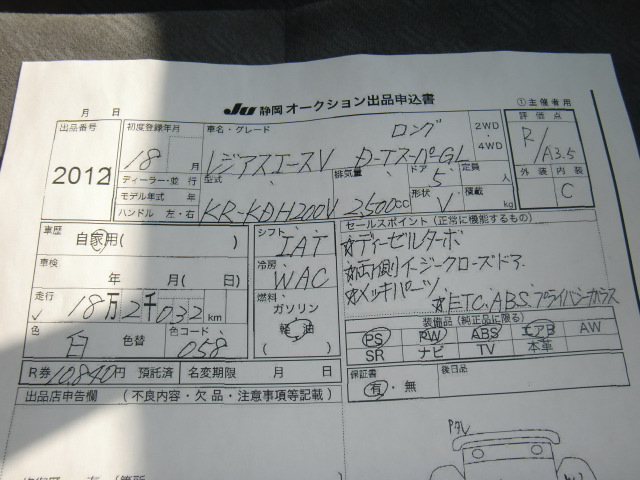 JU 静岡 オークション出品申込書
月 日
①主催者用
出品番号
2012
初度登録年月
18 月
車名・グレード
ロング
レジアスエースV D-TスーパーGL
2WD・4WD
評価点
R/A3.5
外装 内装
C
ディーラー・並行
モデル年式 年
ハンドル 左・右
型式
KR-KDH200V
排気量
2,500cc
ドア
5
形状
V
定員
人
積載
kg
車歴
自家用( )
車検
年 月( 日)
走行
✓ 18万2千032km
色
白 色替
色コード
058
シフト
IAT
冷房
WAC
燃料
ガソリン
軽油
( )
セールスポイント(正常に機能するもの)
☆ディーゼルターボ
☆両側イージークローズドア
☆メッキパーツ
☆ETC、ABS、プライバシーガラス
装備品(純正品に限る)
PS RW ABS エアB AW
SR ナビ TV 本革
R券 10,840円 預託済 名変期限 月 日
保証書
有・無
後日品
出品店申告欄 (不良内容・欠品・注意事項等記載)